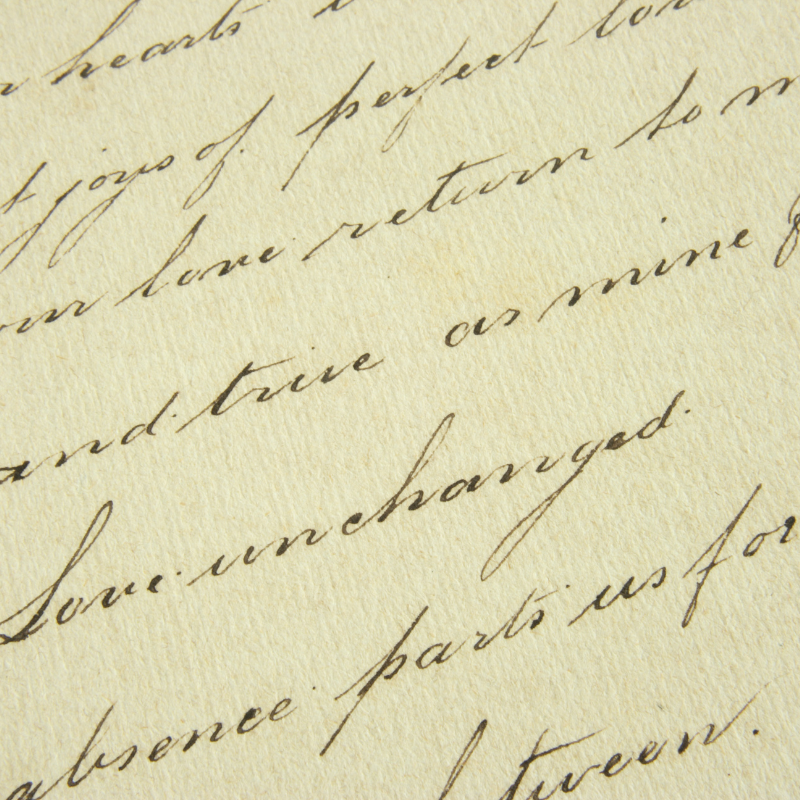 hearts
joys of perfect
love return to
and true as mine
Love unchanged.
absence parts us for